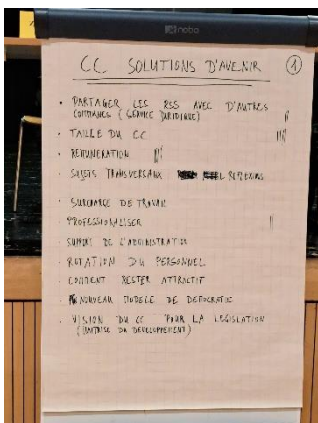 nobo
CC SOLUTIONS D'AVENIR 1
• PARTAGER LES RSS AVEC D'AUTRES
COMMUNES (SERVICE JURIDIQUE)
• TAILLE DU CC
• REMUNERATION
• SUJETS TRANSVERSAUX REFLEXIONS
• SURCHARGE DE TRAVAIL
PROFESSIONALISER
• SUPPORT DE L'ADMINISTRATION
• ROTATION DU PERSONNEL
• COMMENT RESTER ATTRACTIF
• NOUVEAU MODELE DE DEMOCRATIE
• VISION DU CC POUR LA LEGISLATION
(MAITRISE DU DEVELOPPEMENT)